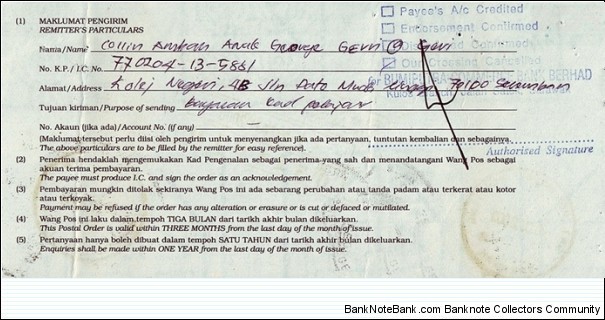 (1) MAKLUMAT PENGIRIM
REMITTER'S PARTICULARS
Payee's A/c Credited
Endorsement Confirmed
Confirmed
Our Crossing Cancelled
BANK BERHAD
Nama/Name Collin Anak George Gerri @ Geri
No. K.P./I.C. No. 770204-13-5881
Alamat/Address Kolej Negeri, 4B Jln Dato 70100 Seremban
Tujuan kiriman/Purpose of sending Bayaran
No. Akaun (jika ada)/Account No. (if any) —
(Maklumat tersebut perlu diisi oleh pengirim untuk menyenangkan jika ada pertanyaan, tuntutan kembalian dan sebagainya.
The above particulars are to be filled by the remitter for easy reference).
Authorised Signature
(2) Penerima hendaklah mengemukakan Kad Pengenalan sebagai penerima yang sah dan menandatangani Wang Pos sebagai
akuan terima pembayaran.
The payee must produce I.C. and sign the order as an acknowledgement.
(3) Pembayaran mungkin ditolak sekiranya Wang Pos ini ada sebarang perubahan atau tanda padam atau terkerat atau kotor
atau terkoyak.
Payment may be refused if the order has any alteration or erasure or is cut or defaced or mutilated.
(4) Wang Pos ini laku dalam tempoh TIGA BULAN dari tarikh akhir bulan dikeluarkan.
This Postal Order is valid within THREE MONTHS from the last day of the month of issue.
(5) Pertanyaan hanya boleh dibuat dalam tempoh SATU TAHUN dari tarikh akhir bulan dikeluarkan.
Enquiries shall be made within ONE YEAR from the last day of the month of issue.
BankNoteBank.com - Banknote Collectors Community